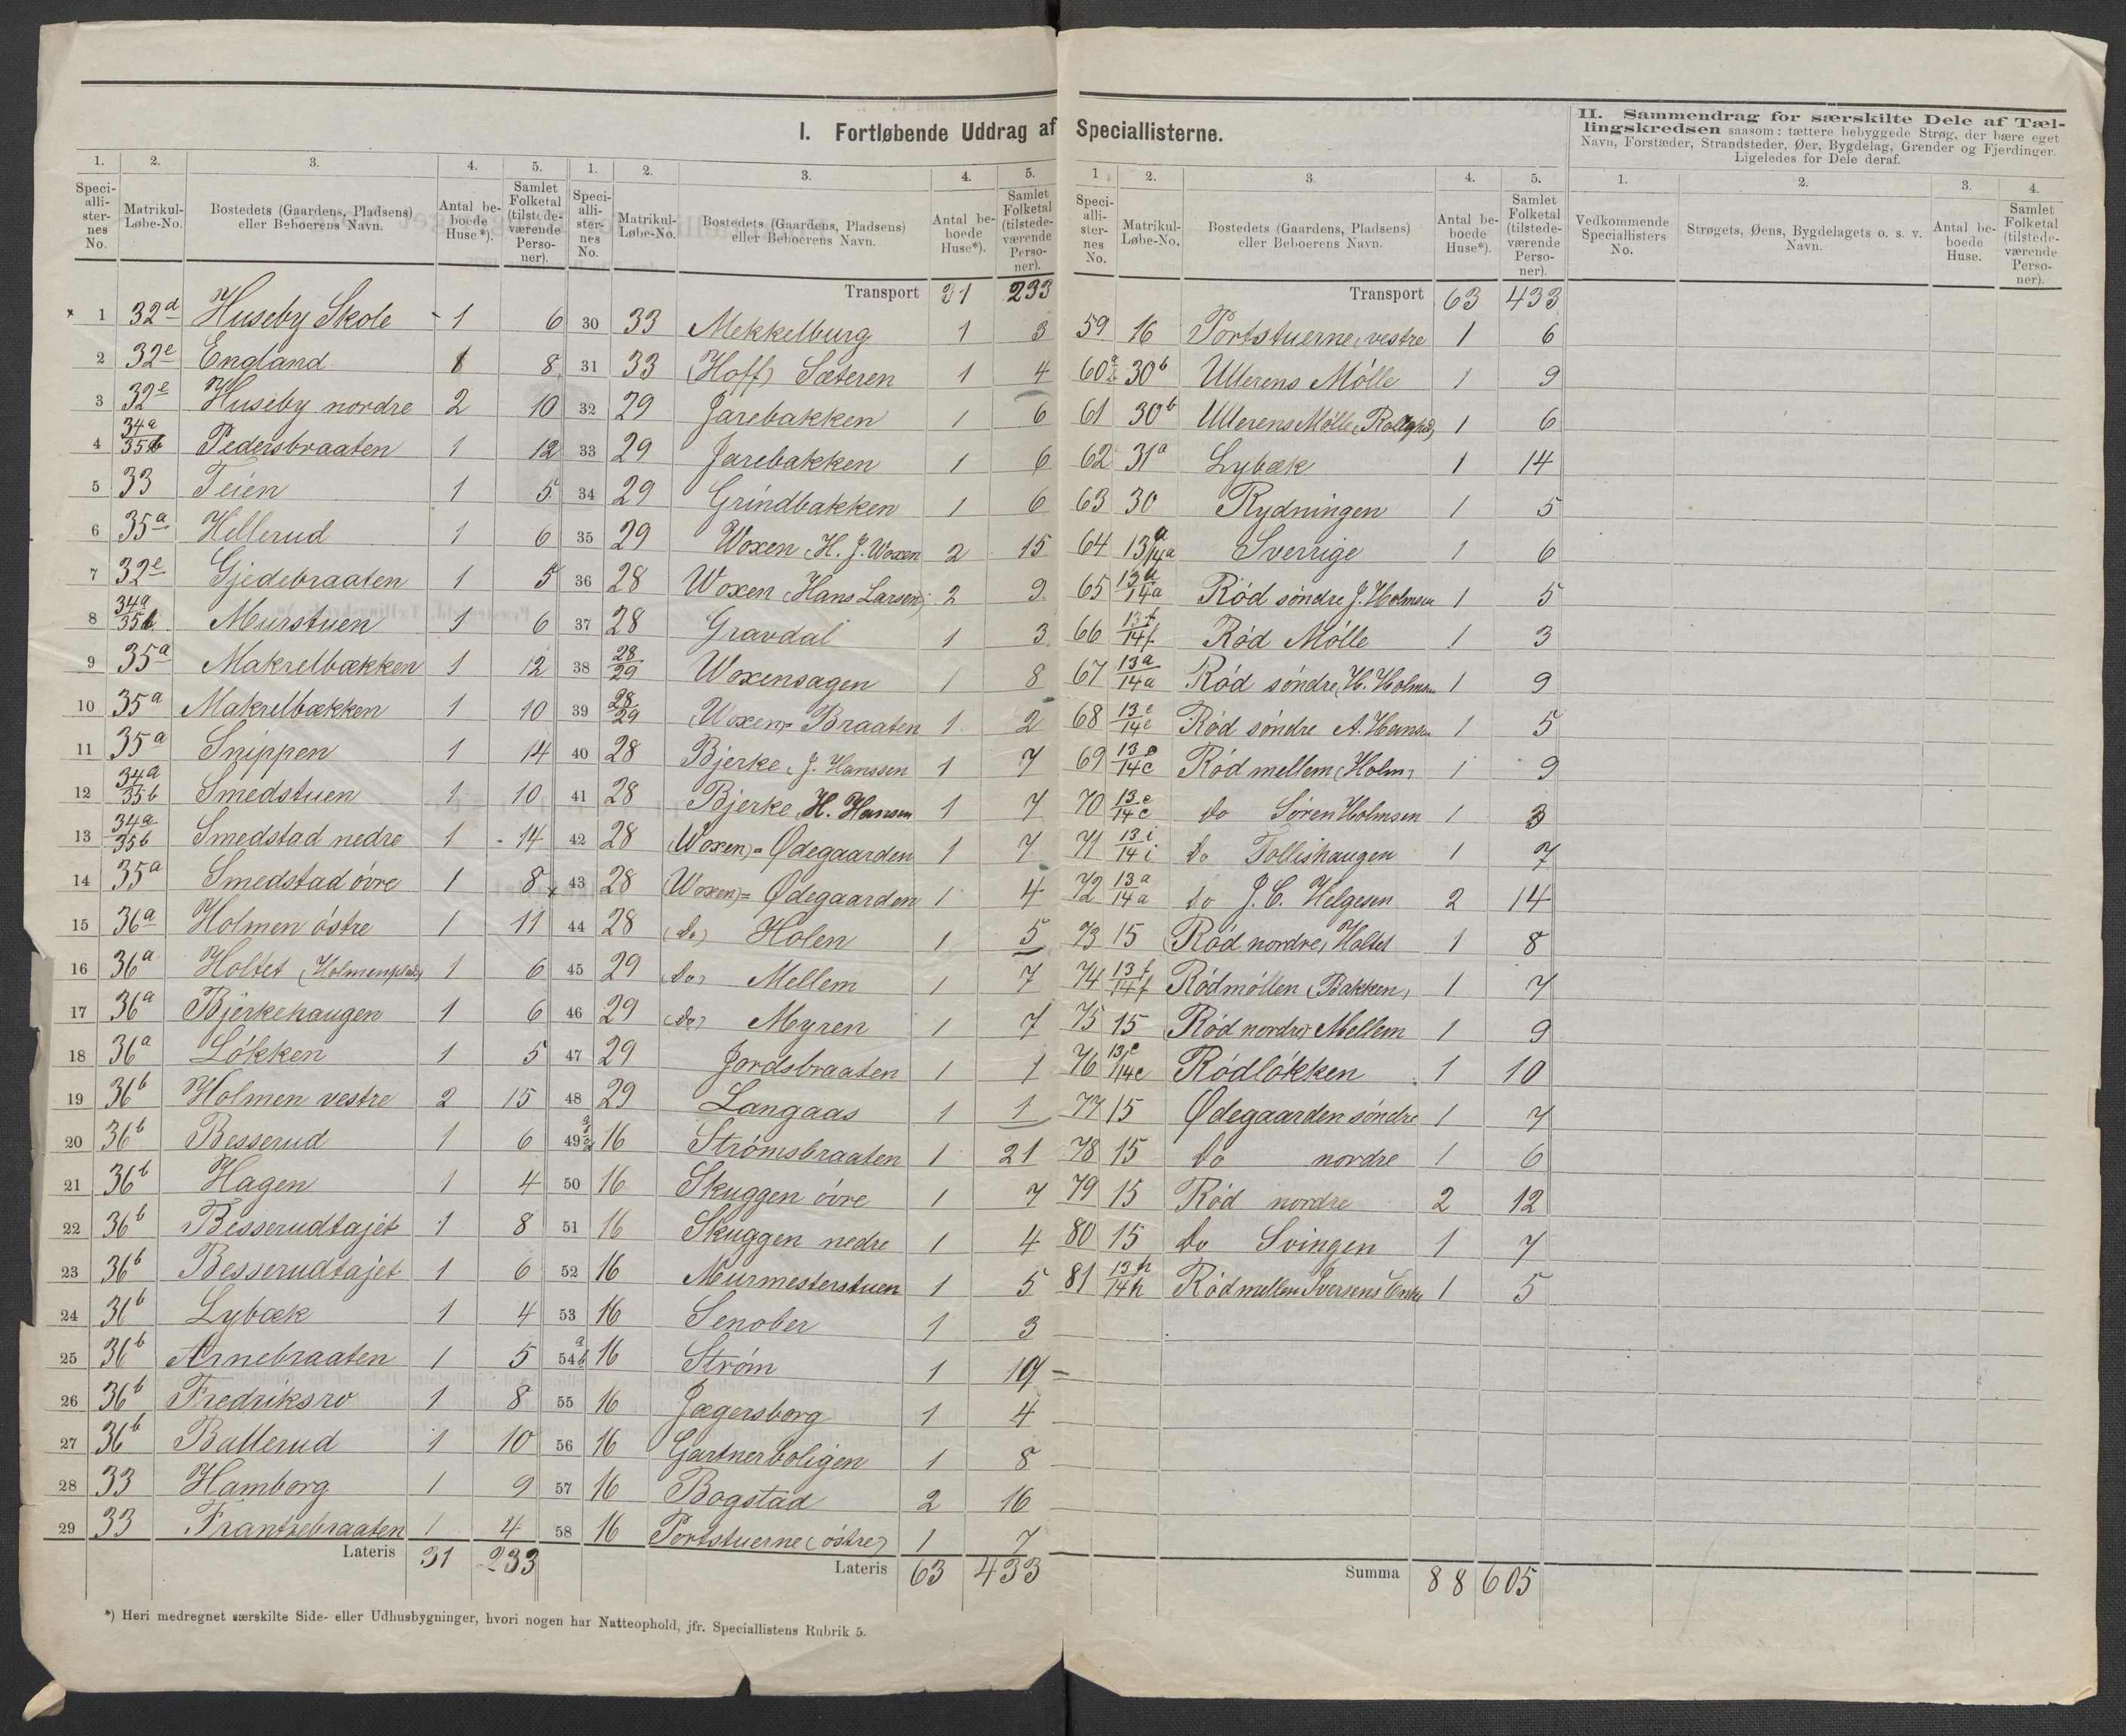 I. Fortløbende Uddrag af Speciallisterne.
II. Sammendrag for særskilte Dele af Tæl-
lingskredsen saasom: tættere bebyggede Strøg, der bære eget
Navn, Forstæder, Strandsteder, Øer, Bygdelag, Grender og Fjerdinger.
Ligeledes for Dele deraf.
1. 2. 3. 4. 5.
Speci-alli-ster-nes No. Matrikul-Løbe-No. Bostedets (Gaardens, Pladsens) eller Beboerens Navn. Antal be-boede Huse*). Samlet Folketal (tilstede-værende Perso-ner).
1 32d Huseby Skole 1 6
2 32e England 1 8
3 32e Huseby nordre 2 10
4 34a/35b Pedersbraaten 1 12
5 33 Teien 1 5
6 35a Hellerud 1 6
7 32e Gjedebraaten 1 5
8 34a/35b Murstuen 1 6
9 35a Makrelbækken 1 12
10 35a Makrelbækken 1 10
11 35a Snippen 1 14
12 34a/35b Smedstuen 1 10
13 34a/35b Smedstad nedre 1 14
14 35a Smedstad övre 1 8
15 36a Holmen östre 1 11
16 36a Holtet (Holmenplads) 1 6
17 36a Bjerkehaugen 1 6
18 36a Lökken 1 5
19 36b Holmen vestre 2 15
20 36b Besserud 1 6
21 36b Hagen 1 4
22 36b Besserudtajet 1 8
23 36b Besserudtajet 1 6
24 36b Lybæk 1 4
25 36b Arnebraaten 1 5
26 36b Fredriksro 1 8
27 36b Ballerud 1 10
28 33 Hamborg 1 9
29 33 Frantsebraaten 1 4
Lateris 31 233
1. 2. 3. 4. 5.
Speci-alli-ster-nes No. Matrikul-Løbe-No. Bostedets (Gaardens, Pladsens) eller Beboerens Navn. Antal be-boede Huse*). Samlet Folketal (tilstede-værende Perso-ner).
Transport 31 233
30 33 Mekkelburg 1 3
31 33 (Hoff) Sæteren 1 4
32 29 Jarebakken 1 6
33 29 Jarebakken 1 6
34 29 Grindbakken 1 6
35 29 Woxen (H. J. Woxen 2 15
36 28 Woxen (Hans Larsen) 2 9
37 28 Gravdal 1 3
38 28/29 Woxensagen 1 8
39 28/29 (Woxen)= Braaten 1 2
40 28 Bjerke (J. Hanssen 1 7
41 28 Bjerke (H. Hansen 1 7
42 28 (Woxen)= Ødegaarden 1 7
43 28 (Woxen)= Ødegaarden 1 4
44 28 (Do) Holen 1 5
45 29 (Do) Mellem 1 7
46 29 (Do) Myren 1 7
47 29 Jordsbraaten 1 1
48 29 Langaas 1 1
49 16 Strømsbraaten 1 21
50 16 Skuggen övre 1 7
51 16 Skuggen nedre 1 4
52 16 Murmesterstuen 1 5
53 16 Senober 1 3
54 a b 16 Strøm 1 19
55 16 Jægersborg 1 4
56 16 Gartnerboligen 1 8
57 16 Bogstad 2 16
58 16 Portstuerne (östre) 1 7
Lateris 63 433
1 2. 3. 4. 5.
Speci-alli-ster-nes No. Matrikul-Løbe-No. Bostedets (Gaardens, Pladsens) eller Beboerens Navn. Antal be-boede Huse*). Samlet Folketal (tilstede-værende Perso-ner).
Transport 63 433
59 16 Portstuerne, vestre 1 6
60 30b Ullerens Mølle 1 9
61 30b Ullerens Mølle 1 6
62 31a Lybæk 1 14
63 30 Rydningen 1 5
64 13a/14a Sverrige 1 6
65 13a/14a Röd söndre J. Holmsen 1 5
66 13f/14f Röd Mölle 1 3
67 13a/14a Röd söndre (H. Holmsen 1 9
68 13e/14e Röd söndre A. Hansen 1 5
69 13e/14e Röd mellem (Holm) 1 9
70 13e/14e Do Sören Holmsen 1 3
71 13i/14i Do Tollishaugen 1 7
72 13a/14a Do J. C. Helgesen 2 14
73 15 (Röd nordre) Holtet 1 8
74 13f/14f Rödmöllen (Bakken) 1 7
75 15 (Röd nordre) Mellem 1 9
76 13e/14e Rödlökken 1 10
77 15 Ødegaarden söndre 1 7
78 15 Do nordre 1 6
79 15 Röd nordre 2 12
80 15 Do Svingen 1 7
81 13h/14h Röd mellem Iversens Enke 1 5
Summa 88 605
1. 2. 3. 4.
Vedkommende Speciallisters No. Strøgets, Øens, Bygdelagets o. s. v. Navn. Antal be-boede Huse. Samlet Folketal (tilstede-værende Perso-ner).
*) Heri medregnet særskilte Side- eller Udhusbygninger, hvori nogen har Natteophold, jfr. Speciallistens Rubrik 5.